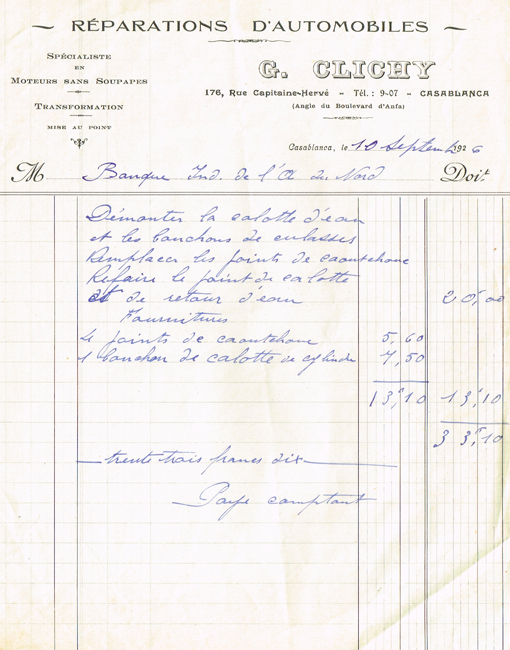 RÉPARATIONS D'AUTOMOBILES
SPÉCIALISTE
EN
MOTEURS SANS SOUPAPES
TRANSFORMATION
MISE AU POINT
G. CLICHY
176, RUE CAPITAINE-HERVÉ - TÉL. : 9-07 - CASABLANCA
(Angle du Boulevard d'Anfa)
Casablanca, le 10 Septembre 1926
M Banque Ind. de l'A du Nord Doit
Démonter la calotte d'eau
et les bouchons de culasses
Remplacer les joints de caoutchouc
Refaire le joint de calotte
et de retour d'eau 20,00
Fournitures
4 joints de caoutchouc 5,60
1 bouchon de calotte de cylindre 7,50
13,10 13,10
33,10
trente trois francs dix
Payé comptant